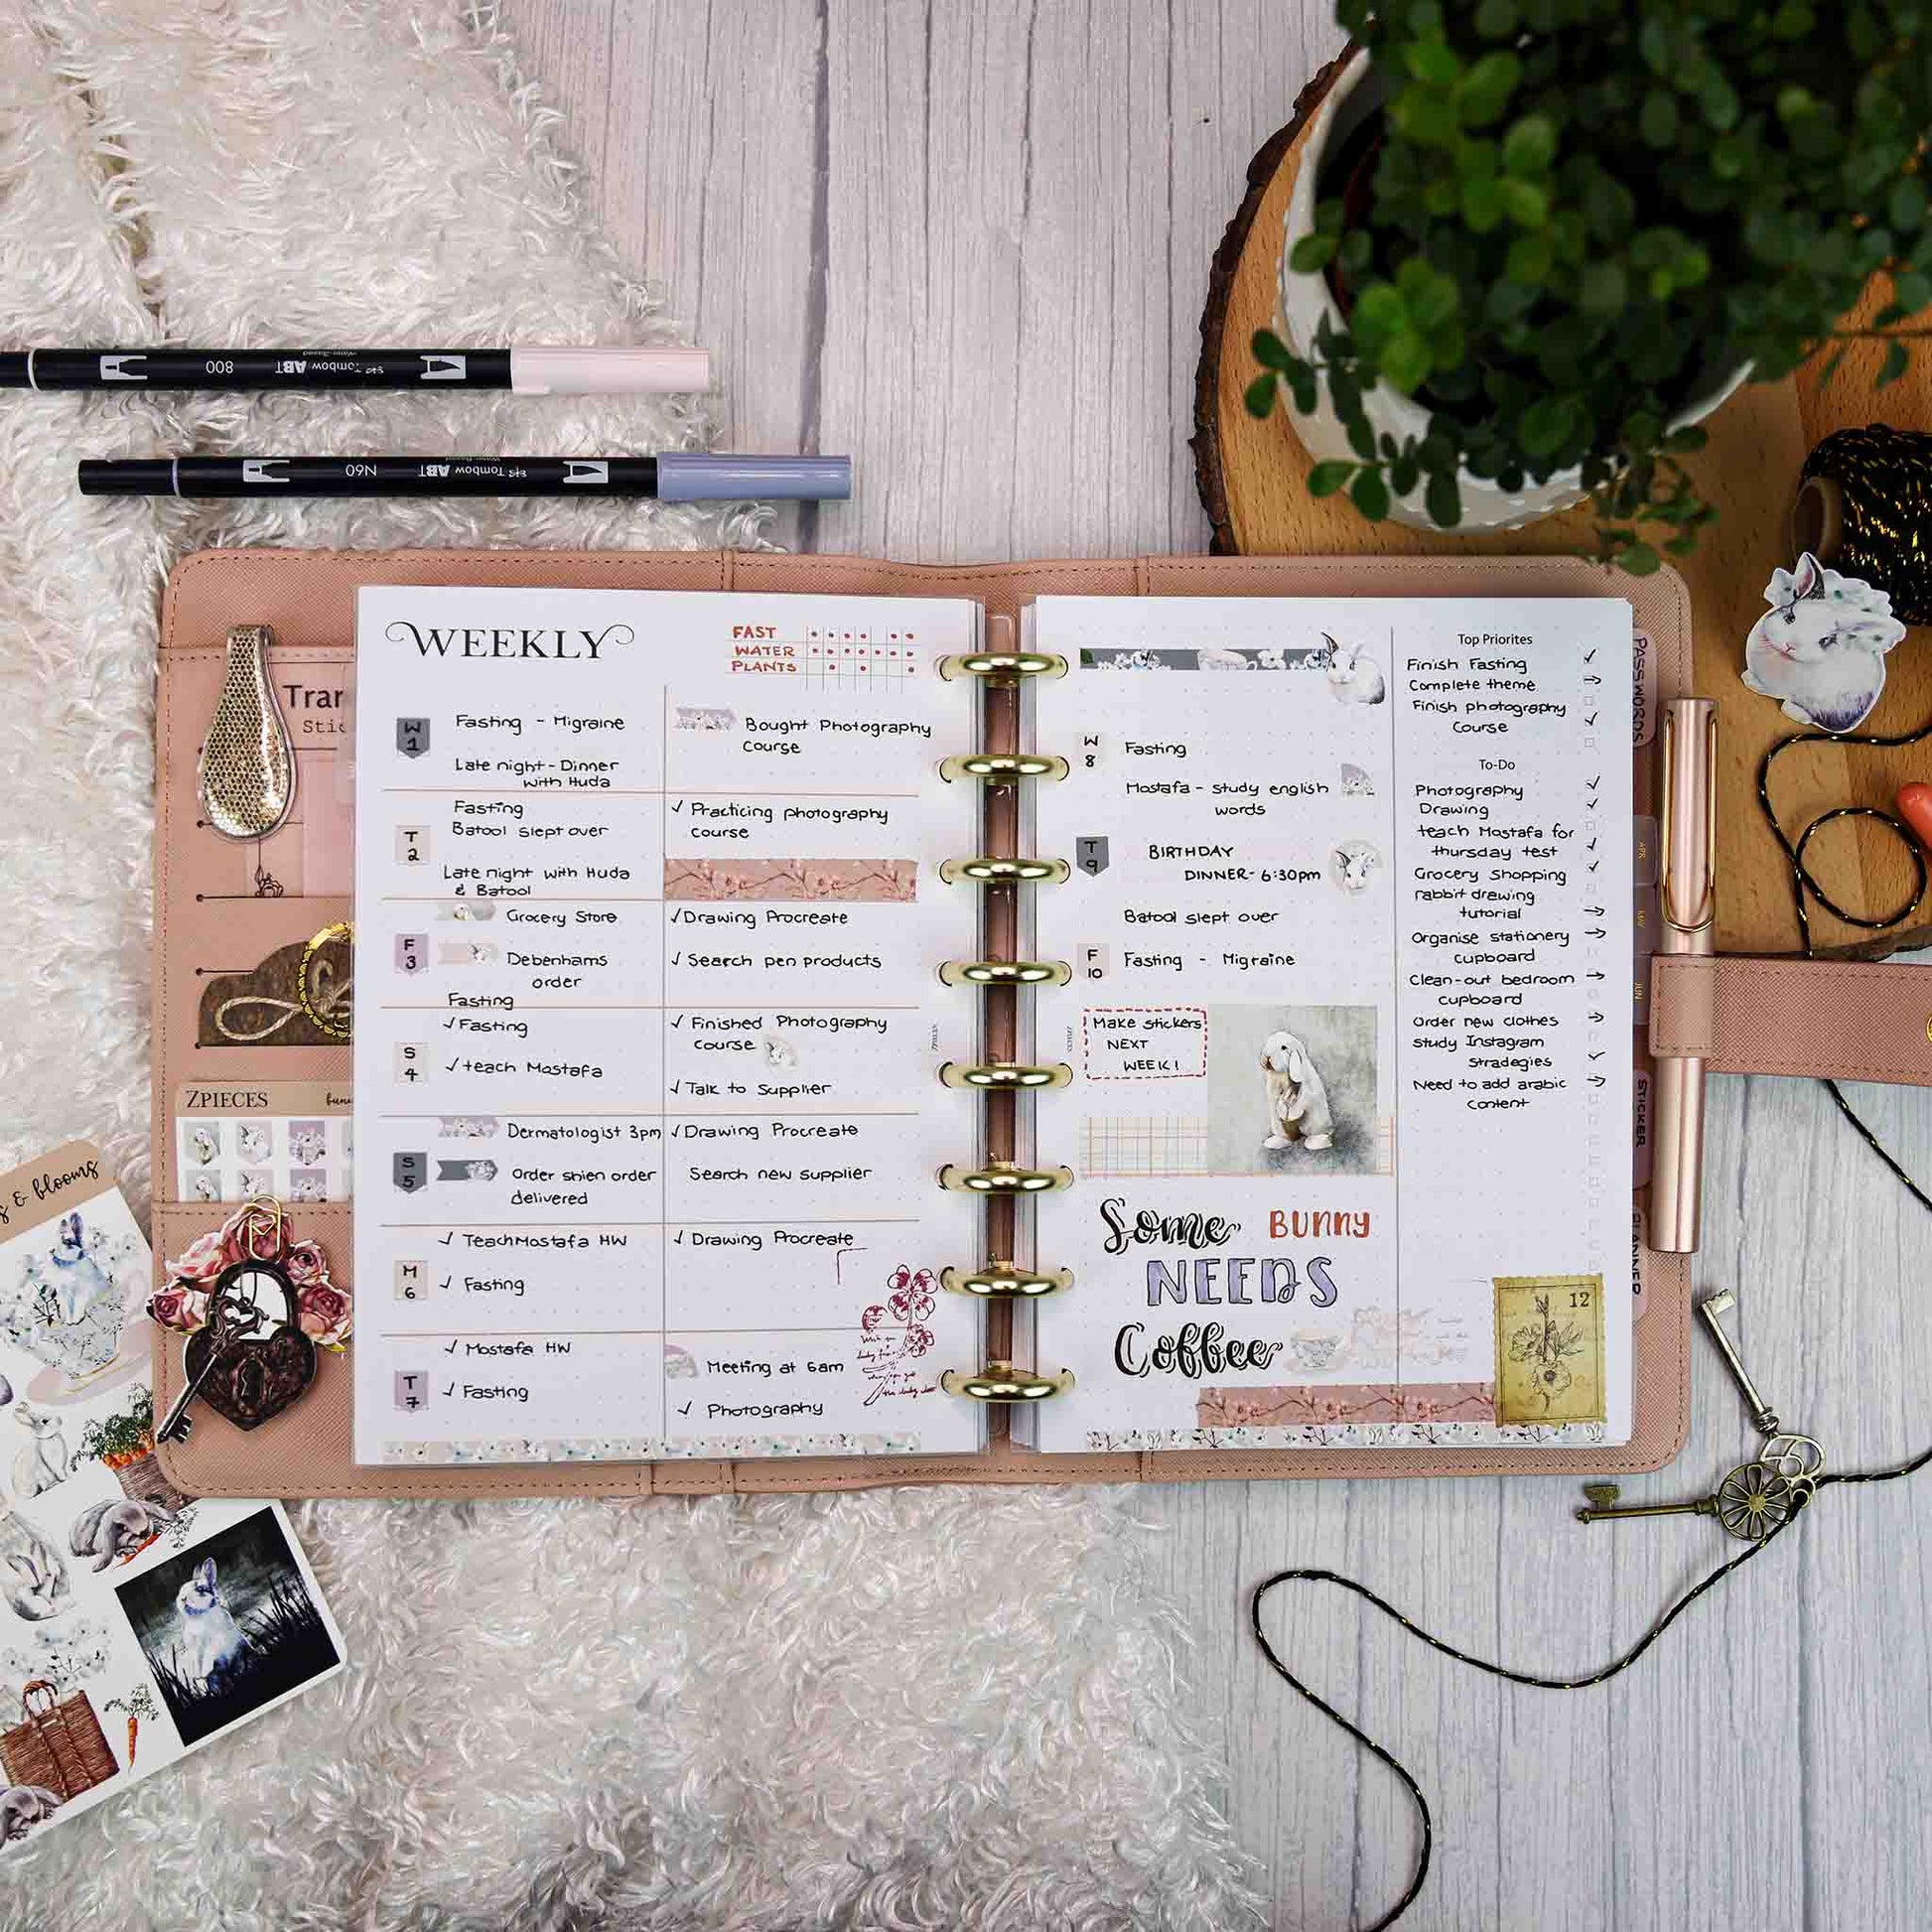 800 Tombow ABT
Water-Based
N60 Tombow ABT
Water-Based
WEEKLY
FAST
WATER
PLANTS
W
1
Fasting - Migraine
Late night - Dinner
with Huda
Bought Photography
Course
T
2
Fasting
Batool slept over
Late night with Huda
& Batool
✓ Practicing photography
course
F
3
Grocery Store
Debenhams
order
Fasting
✓ Drawing Procreate
✓ Search pen products
S
4
✓ Fasting
✓ teach Mostafa
✓ Finished Photography
Course
✓ Talk to Supplier
S
5
Dermatologist 3pm
Order shien order
delivered
✓ Drawing Procreate
Search new supplier
M
6
✓ TeachMostafa HW
✓ Fasting
✓ Drawing Procreate
T
7
✓ Mostafa HW
✓ Fasting
Meeting at 6am
✓ Photography
W
8
Fasting
Mostafa - study english
words
T
9
BIRTHDAY
DINNER- 6:30pm
Batool slept over
F
10
Fasting - Migraine
Make stickers
NEXT
WEEK!
Some BUNNY
NEEDS
Coffee
Top Priorites
Finish Fasting ✓
Complete theme →
Finish photography
Course ✓
To-Do
Photography ✓
Drawing ✓
teach Mostafa for
thursday test ✓
Grocery shopping ✓
rabbit drawing
tutorial →
Organise stationery →
cupboard
Clean-out bedroom →
cupboard
Order new clothes →
Study Instagram
Stradegies ✓
Need to add arabic →
Content
12
PASSWORDS
APR
MAY
JUN
STICKER
PLANNER
Tran
Stic
ZPIECES
& blooms